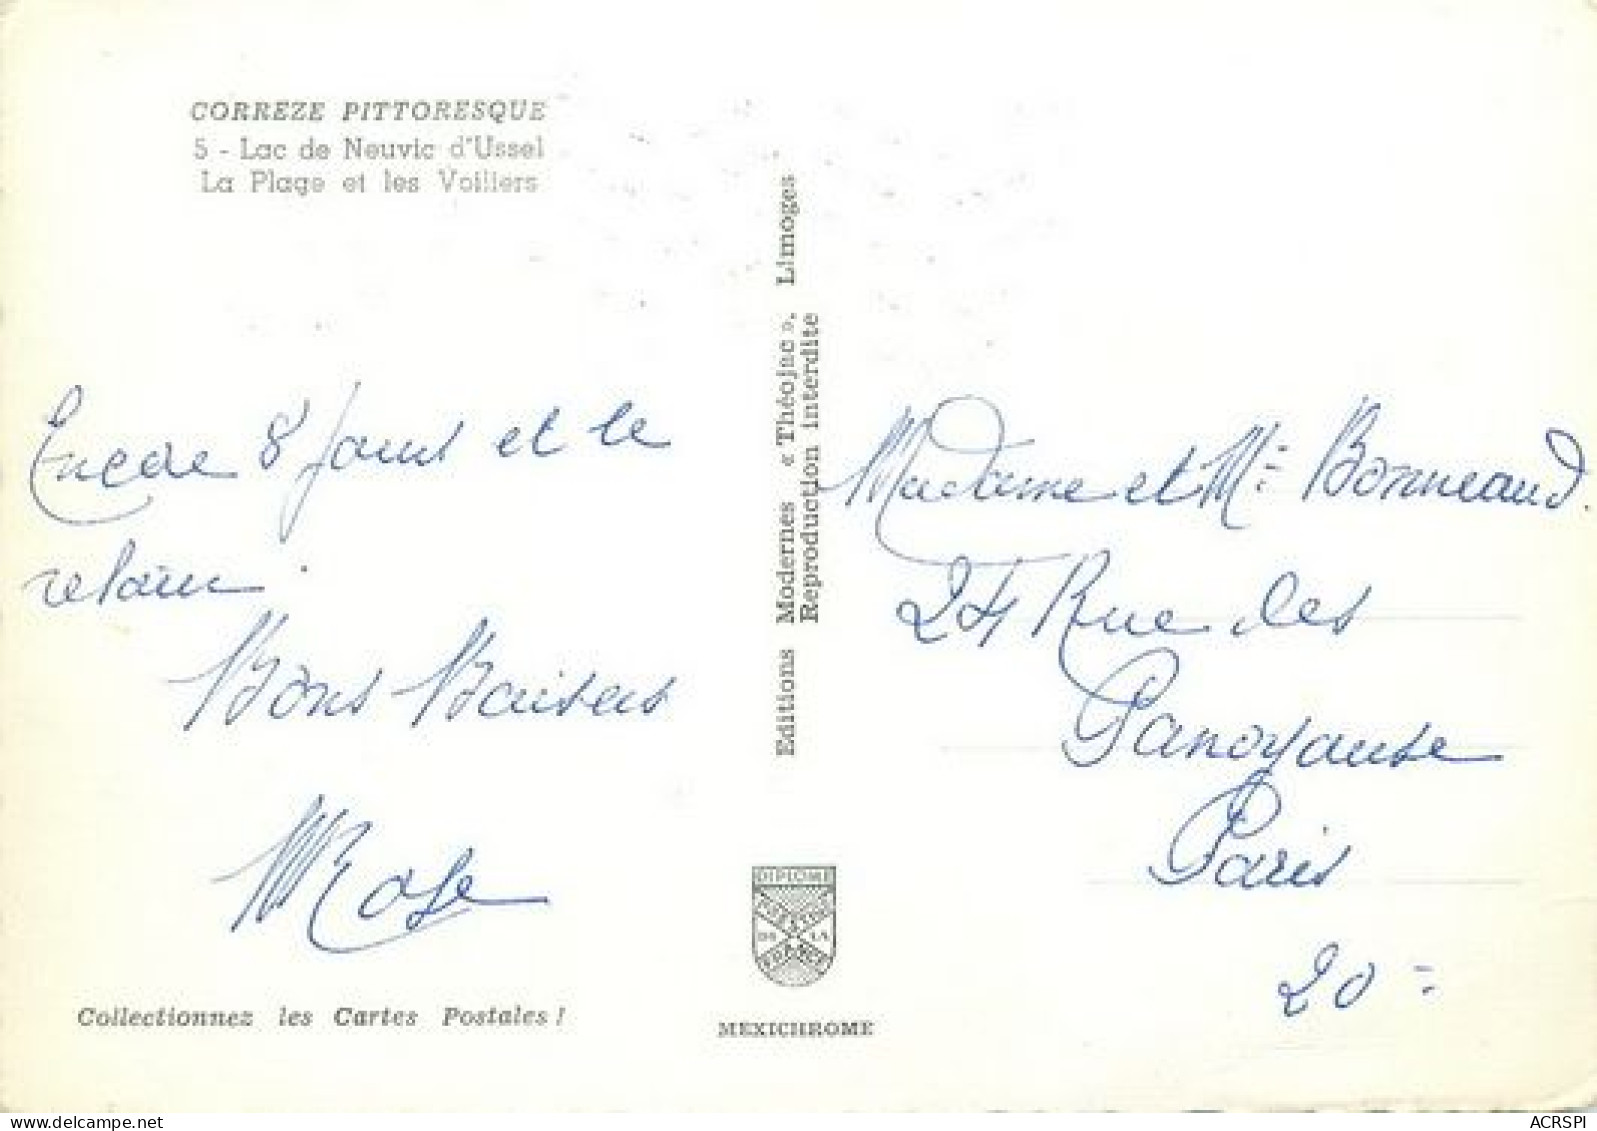 CORREZE PITTORESQUE
5 - Lac de Neuvic d'Ussel
La Plage et les Voiliers
Encore 8 jours et le
retour.
Bons Baisers
MRose
Collectionnez les Cartes Postales !
Editions Modernes « Théojac », Limoges
Reproduction interdite
DIPLOME
PRESTIGE
DE LA
FRANCE
MEXICHROME
Madame et Mr Bonneaud.
24 Rue des
Panoyaux
Paris
20e
ACRSPI